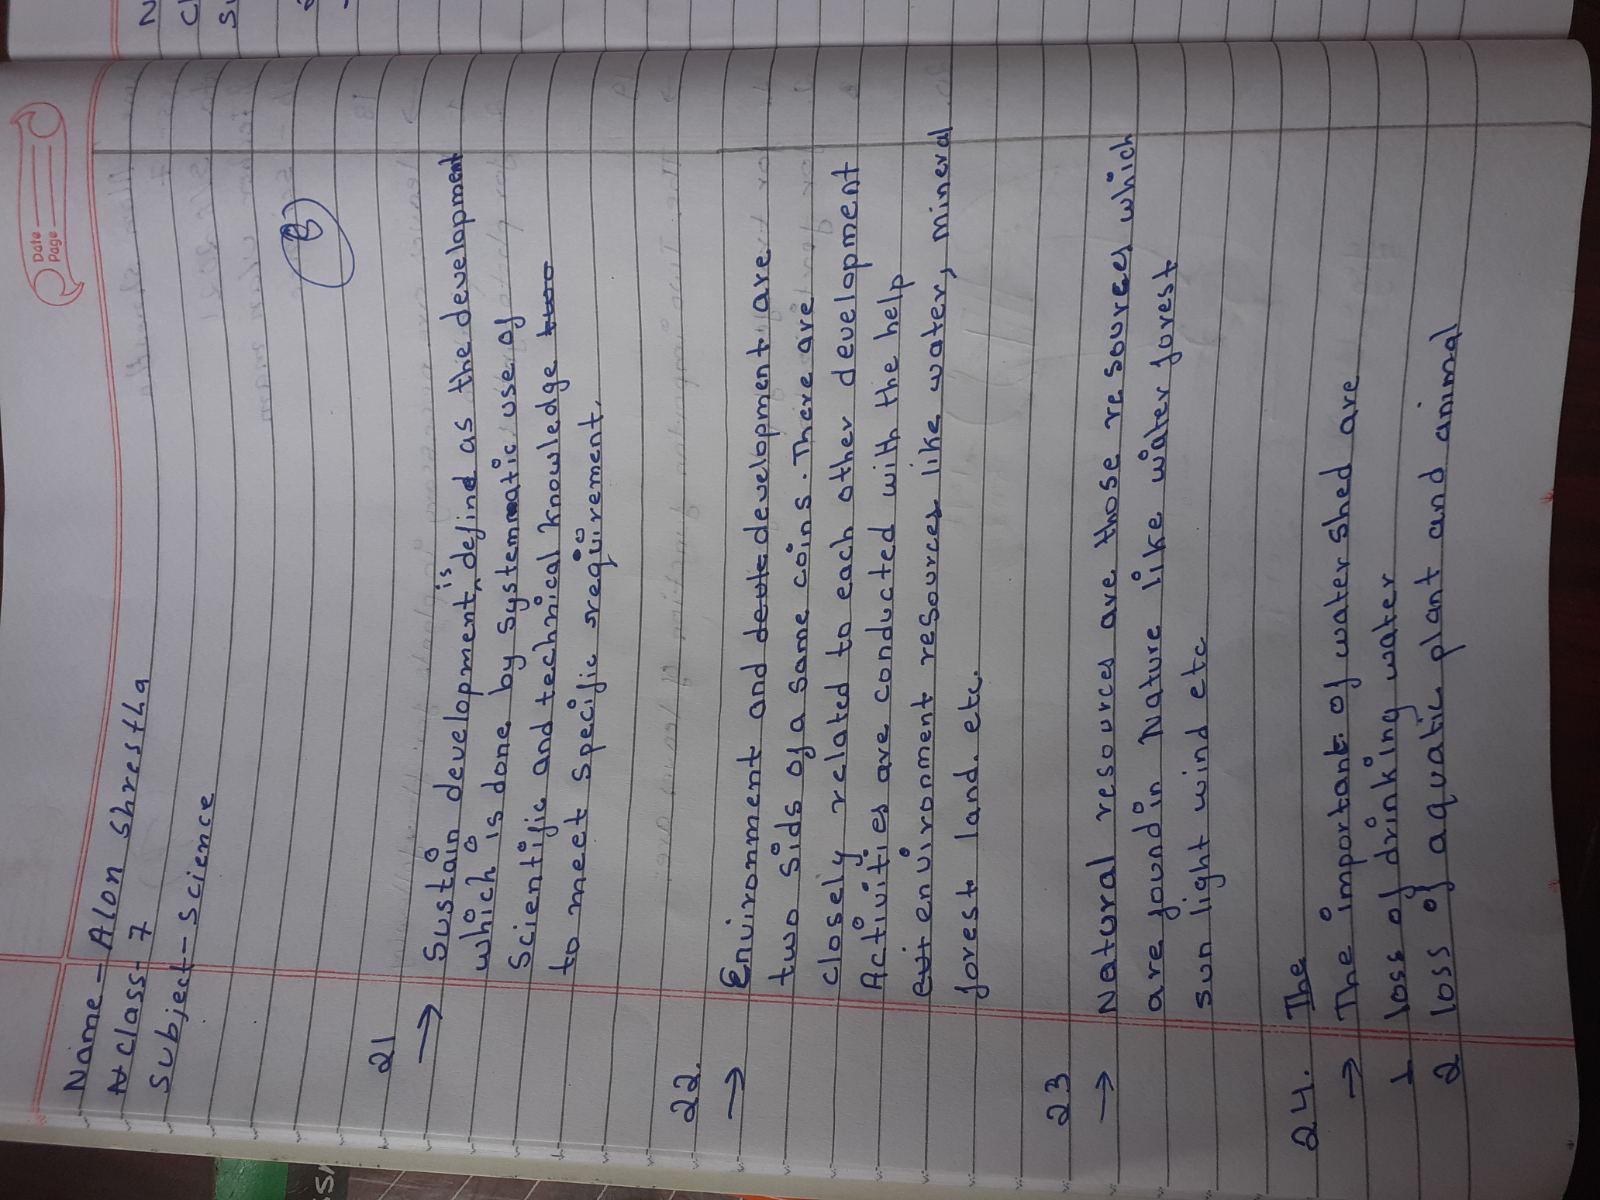 Date
Page
Name - Alon Shrestha
N class - 7
Subject - Science
B
21
→ Sustain development is defind as the development
which is done by systematic use of
Scientific and technical knowledge two
to meet specific requirement.
22.
→ Environment and deute development are
two sids of a same coins. There are
closely related to each other development
Activities are conducted with the help
environment resources like water, mineral
forest land. etc.
23
→ Natural resources are those resources which
are found in Nature like water forest
sun light wind etc
24. The
→ The important of water shed are
1 loss of drinking water
2 loss of aquatic plant and animal